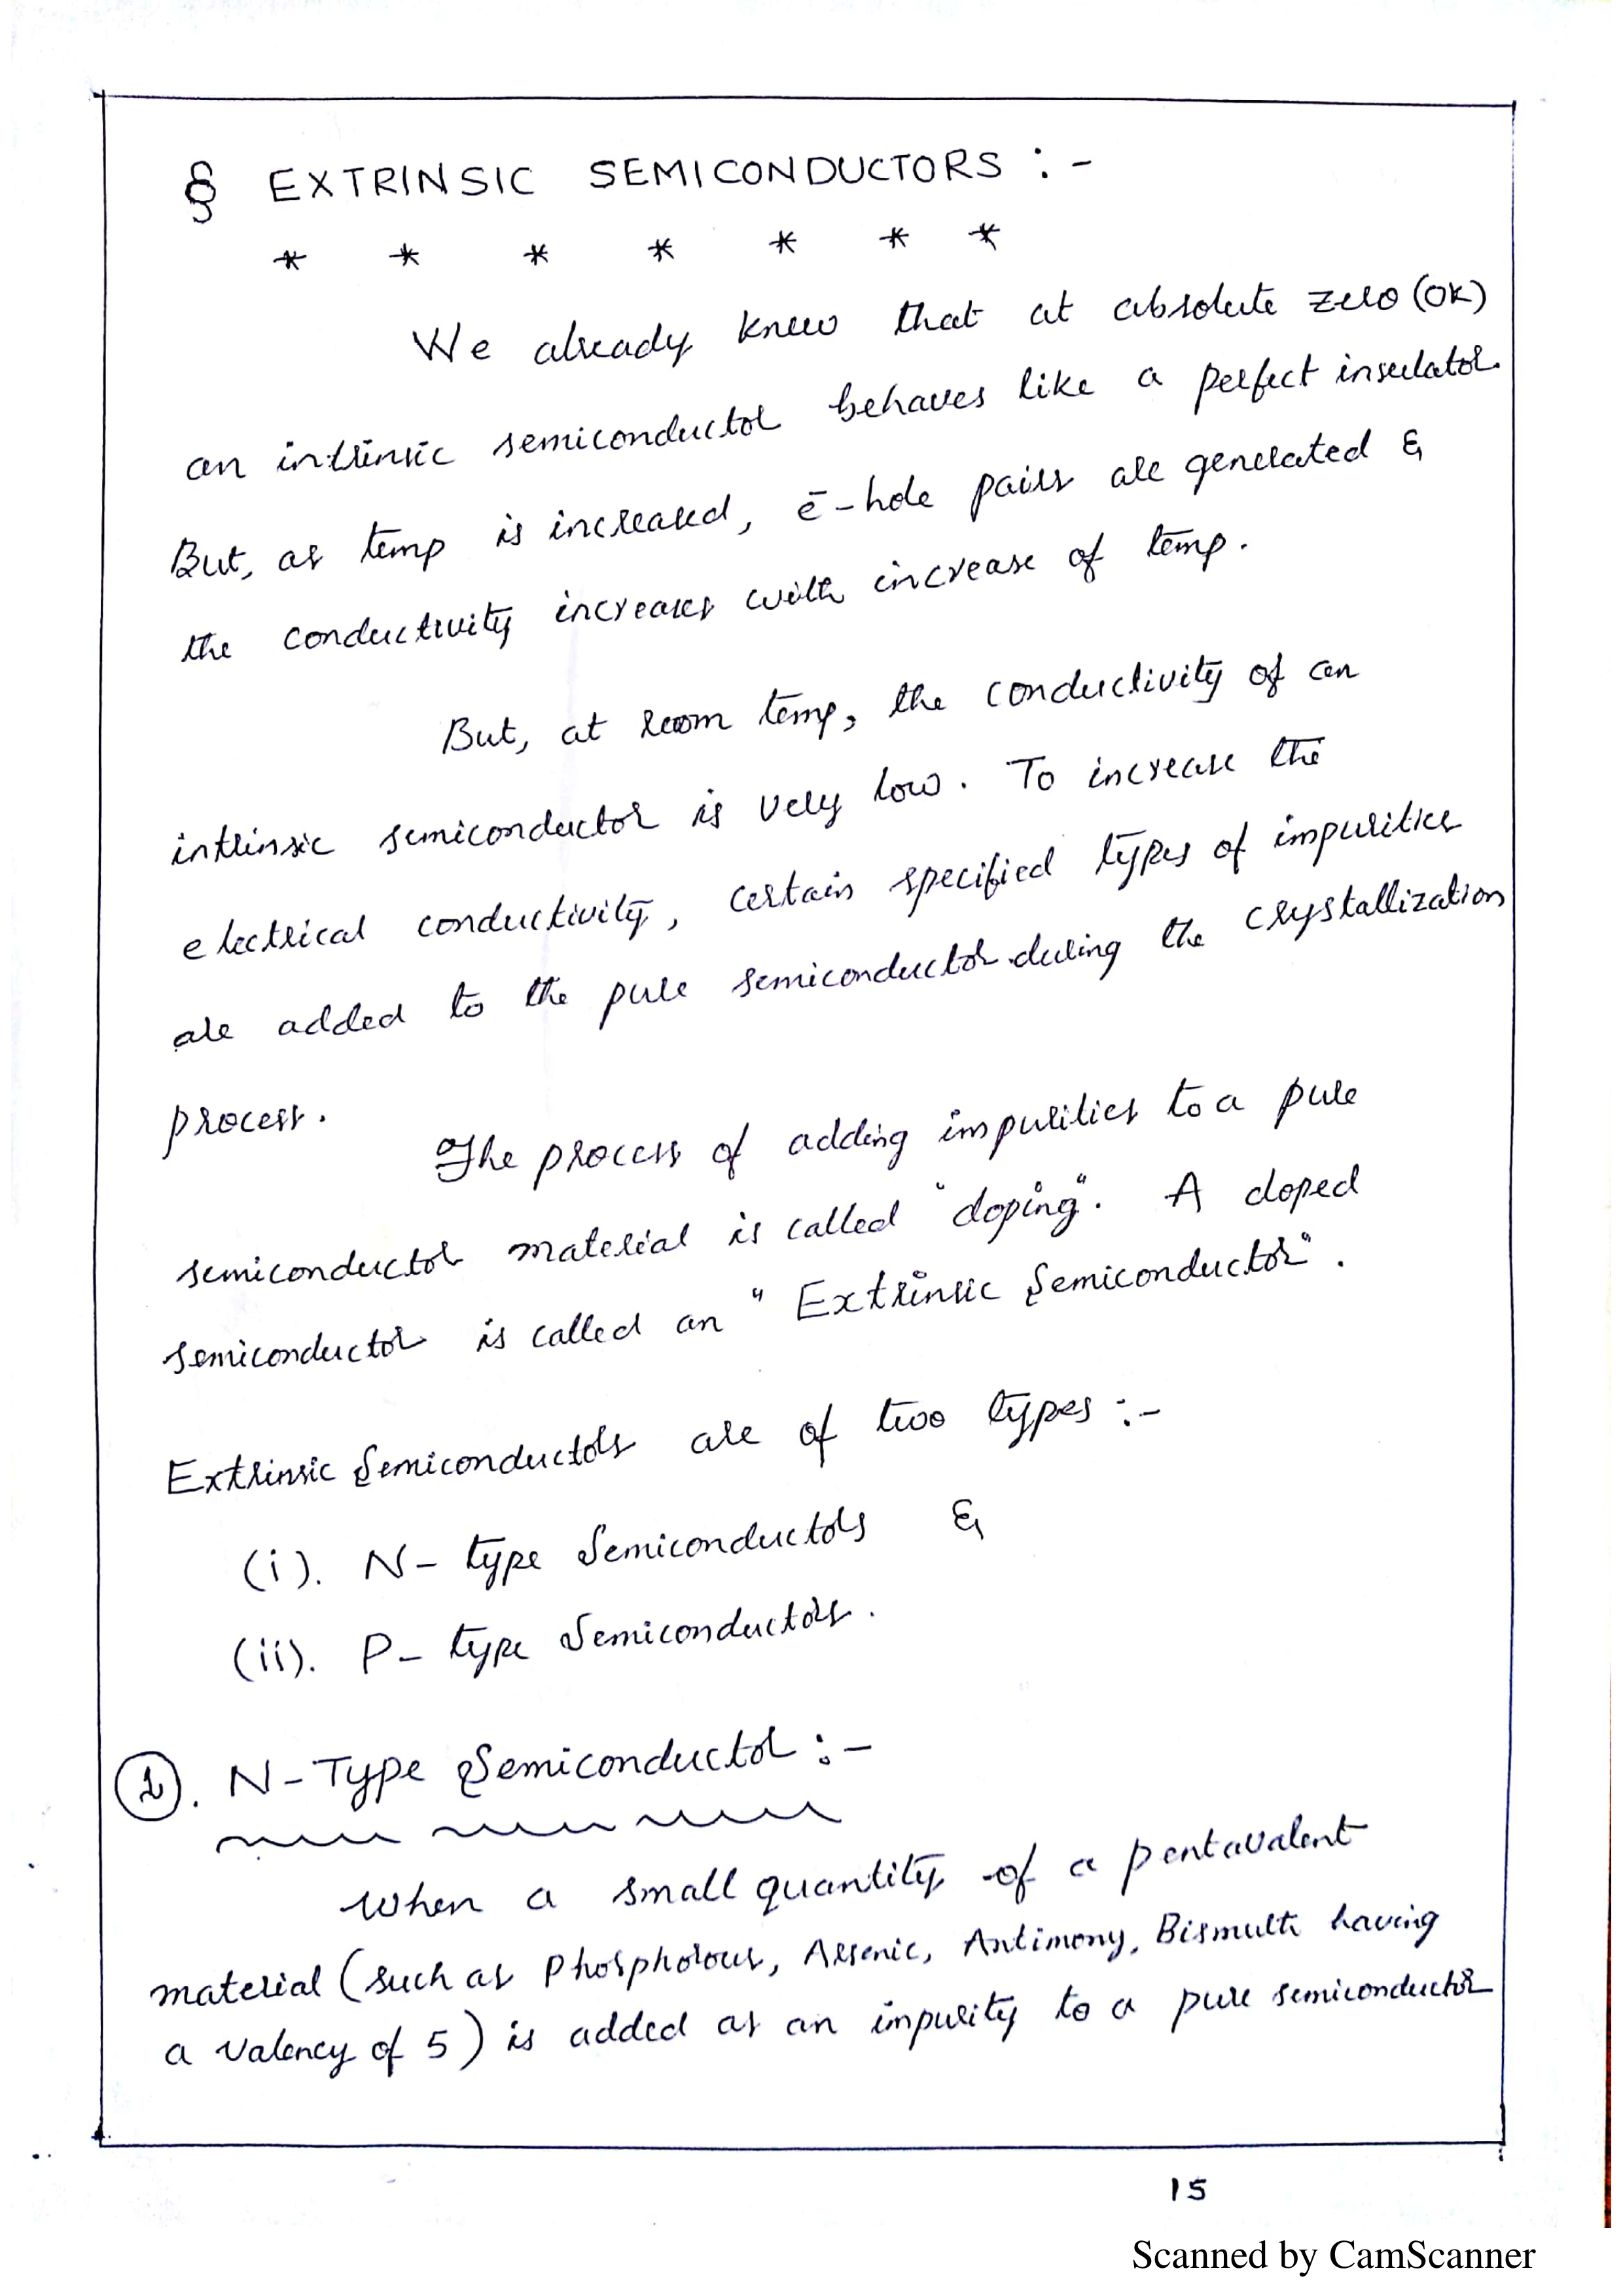 § EXTRINSIC SEMICONDUCTORS :-
* * * * * * *
We already knew that at absolute zero (0K)
an intrinsic semiconductor behaves like a perfect insulator.
But, as temp is increased, ē-hole pairs are generated &
the conductivity increases with increase of temp.
But, at room temp, the conductivity of an
intrinsic semiconductor is very low. To increase the
electrical conductivity, certain specified types of impurities
are added to the pure semiconductor during the crystallization
process.
The process of adding impurities to a pure
semiconductor material is called "doping". A doped
semiconductor is called an "Extrinsic Semiconductor".
Extrinsic Semiconductors are of two types :-
(i). N- type Semiconductors &
(ii). P- type Semiconductors.
1. N-Type Semiconductor :-
When a small quantity of a pentavalent
material (such as Phosphorous, Arsenic, Antimony, Bismuth having
a valency of 5) is added as an impurity to a pure semiconductor
15
Scanned by CamScanner